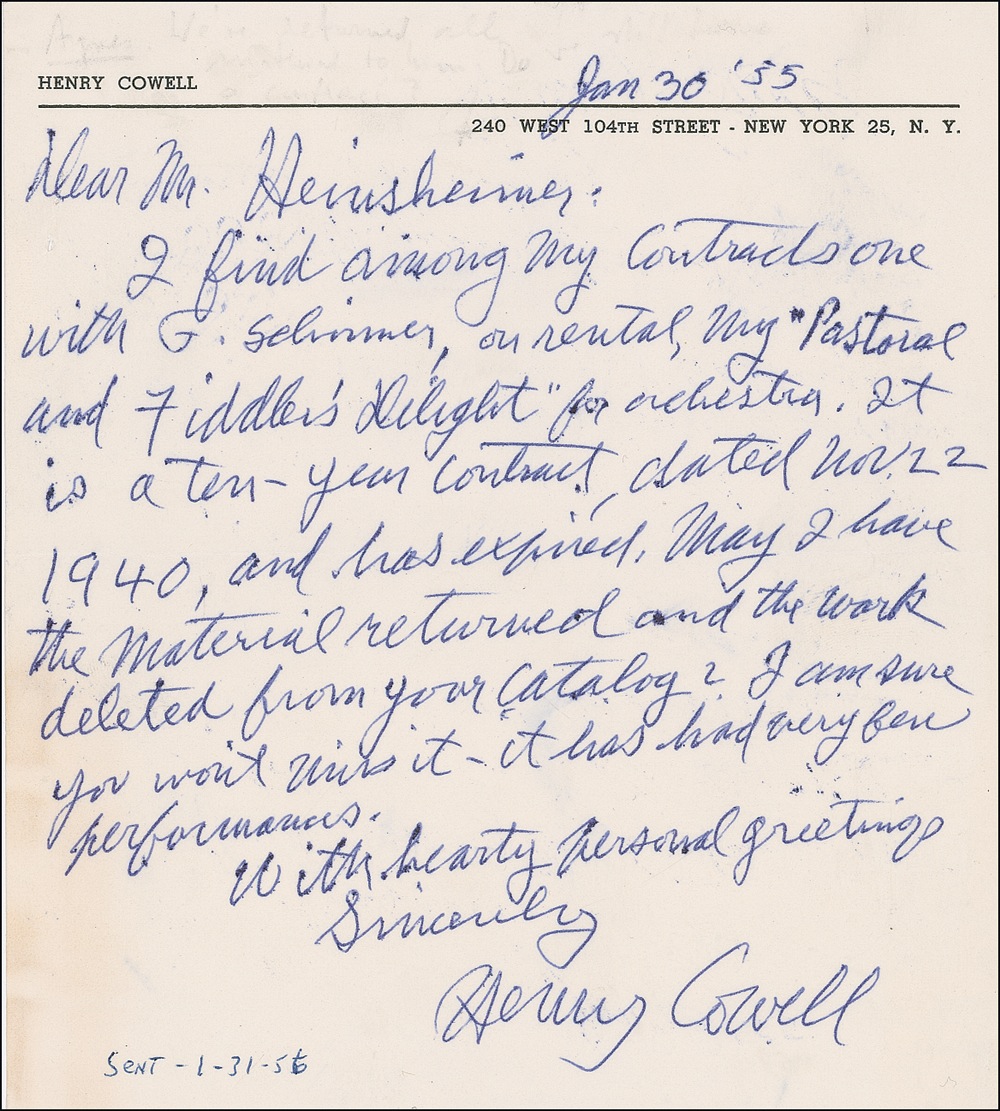 HENRY COWELL
Jan 30 '55
240 WEST 104TH STREET - NEW YORK 25, N. Y.
Dear Mr. Heinsheimer:
I find among my contracts one
with G. Schirmer, on rental, my "Pastoral
and Fiddler's Delight" for orchestra. It
is a ten-year contract, dated Nov. 22
1940, and has expired. May I have
the material returned and the work
deleted from your catalog? I am sure
you won't miss it - it has had very few
performances.
With hearty personal greetings
Sincerely
Henry Cowell
SENT - 1-31-55